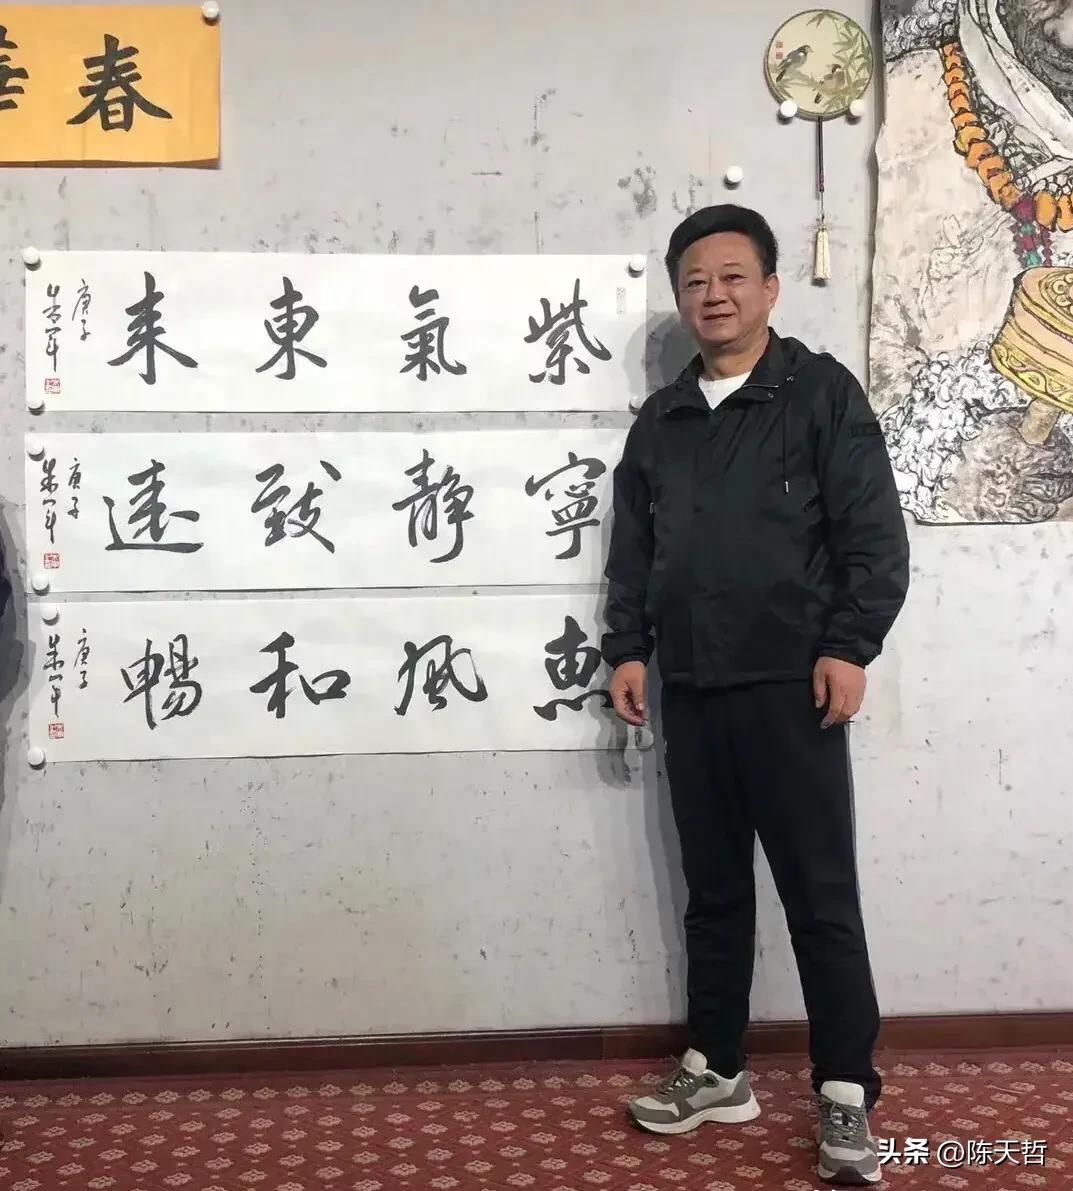 春華
紫氣東来
庚子
朱军
寧静致遠
庚子
朱军
惠風和暢
庚子
朱军
头条 @陈天哲